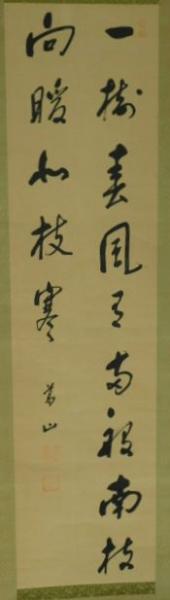 一樹春風有両般南枝
向暖北枝寒
山